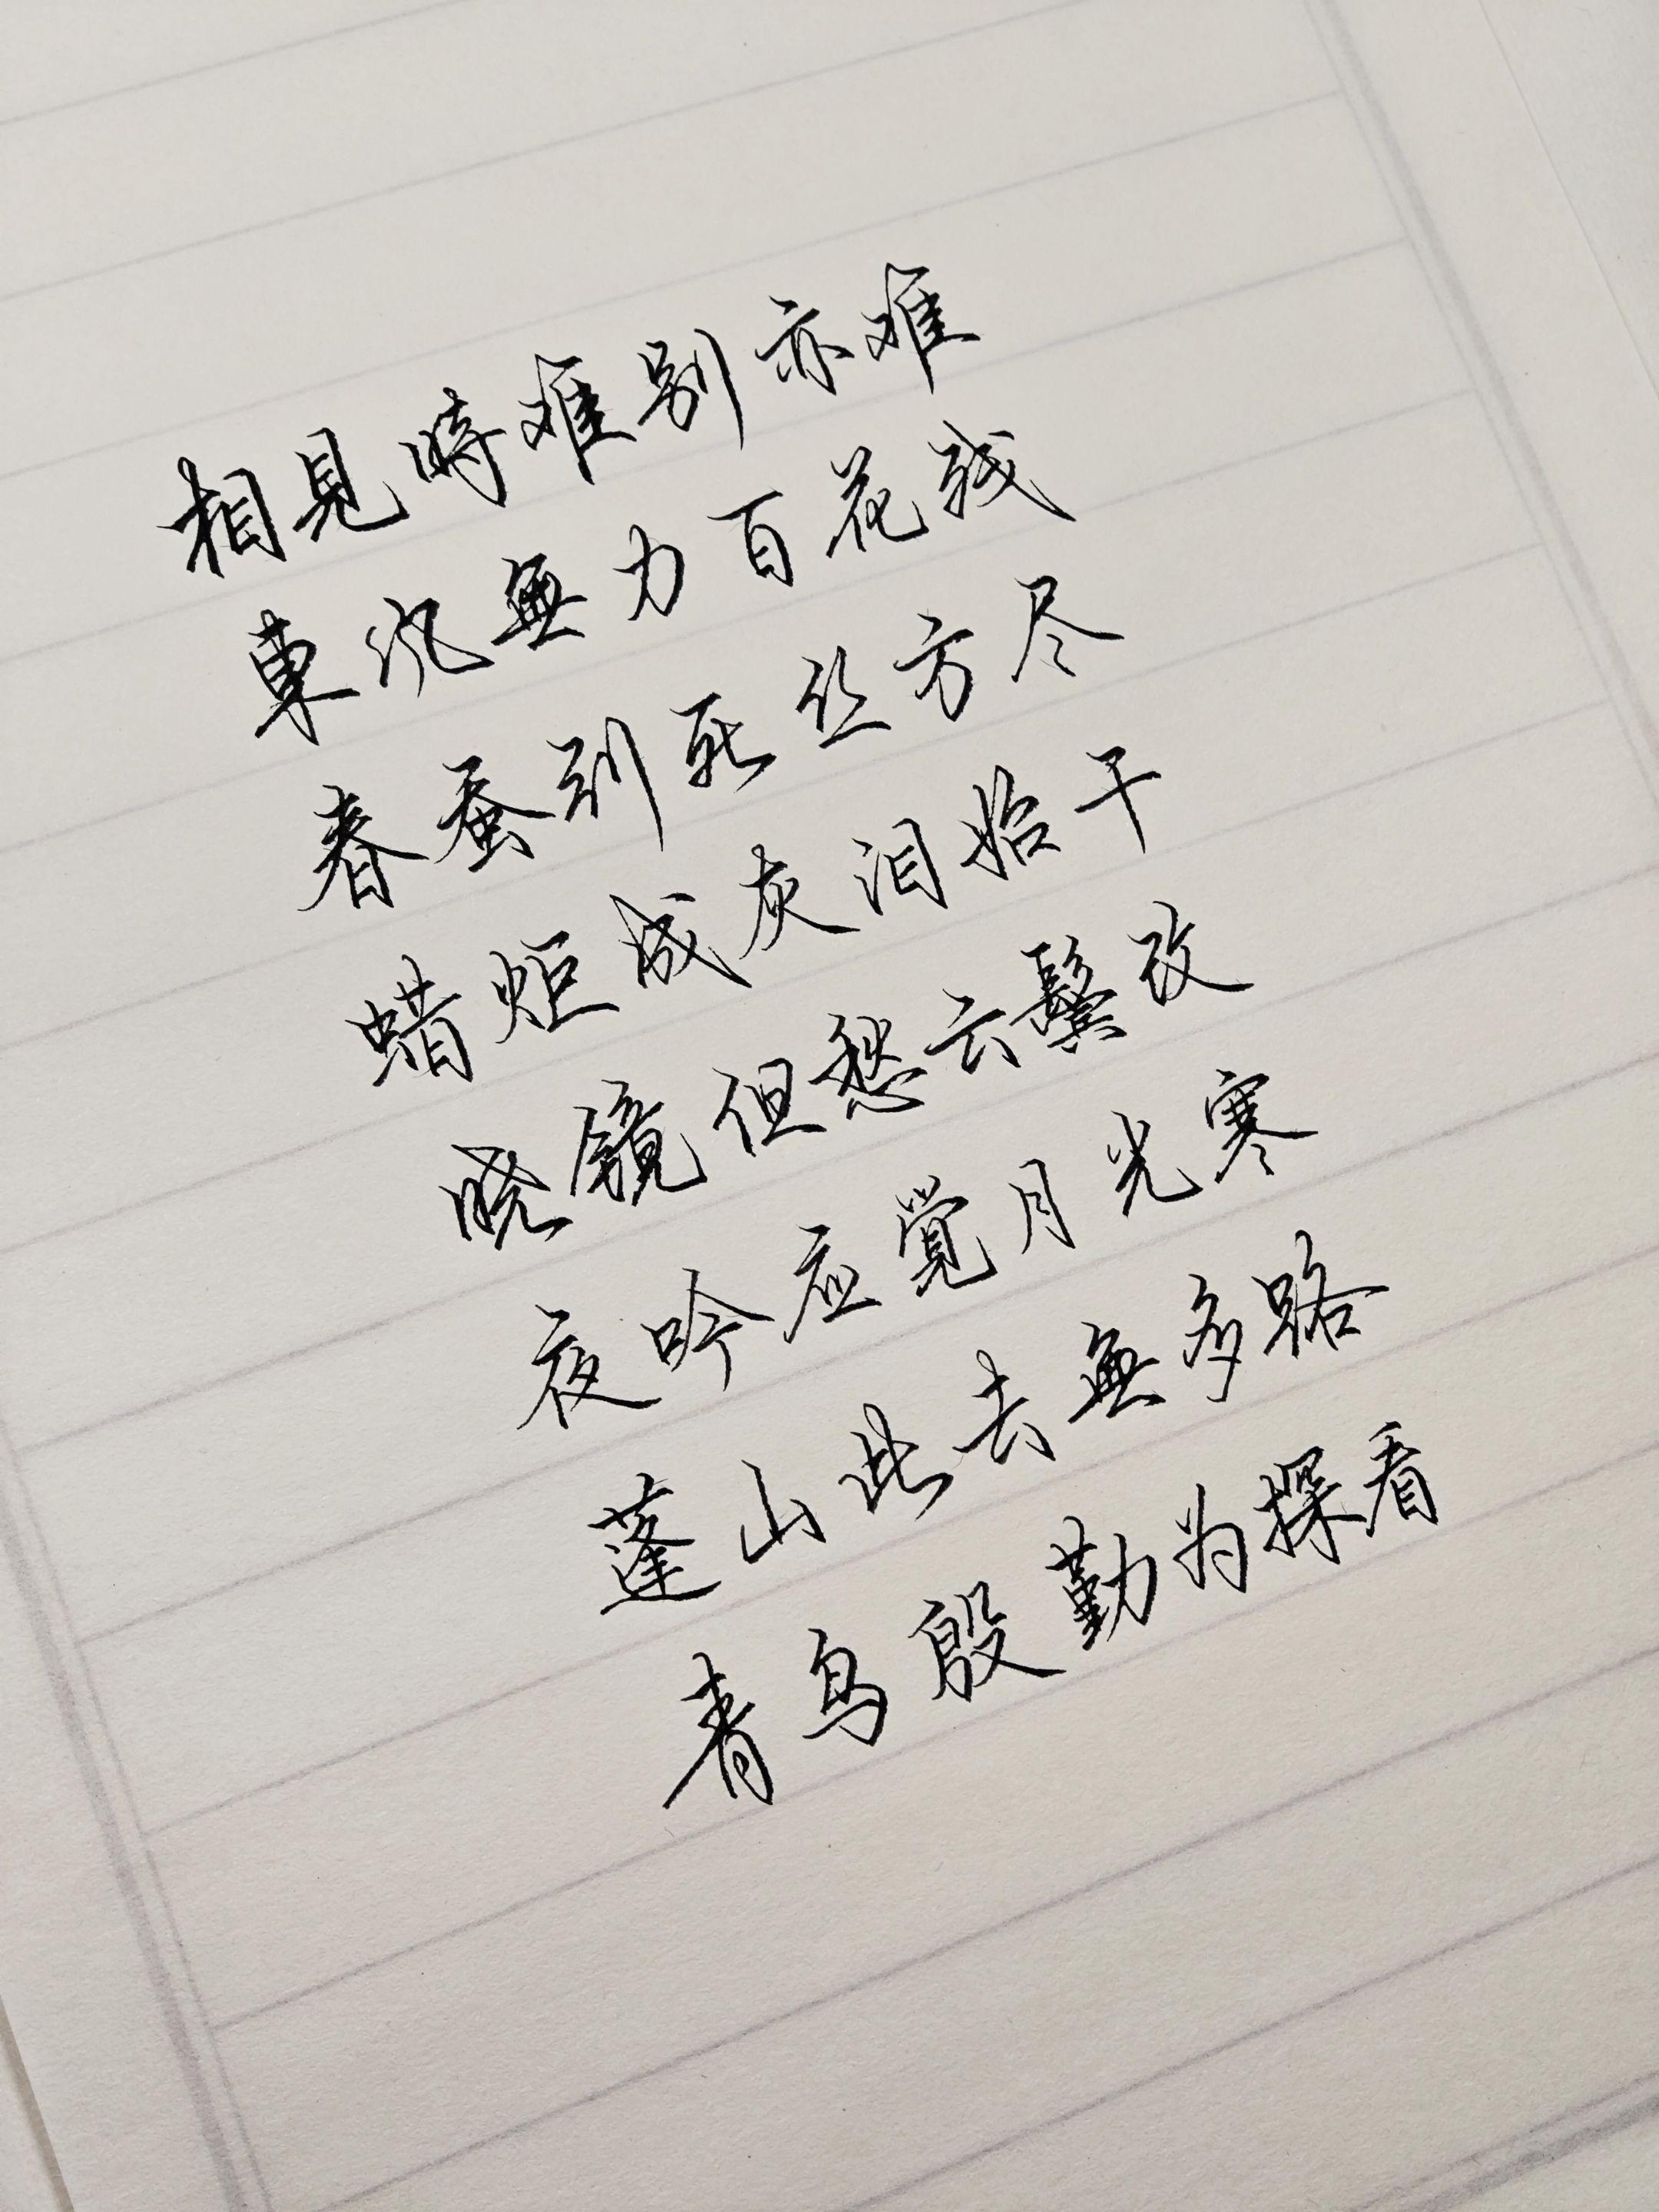 相見時难别亦难
東风無力百花残
春蚕到死丝方尽
蜡炬成灰泪始干
晓镜但愁云鬓改
夜吟应覺月光寒
蓬山此去無多路
青鸟殷勤为探看